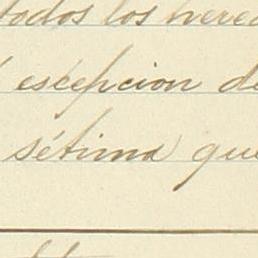 todos los here
escepcion de
sétima que